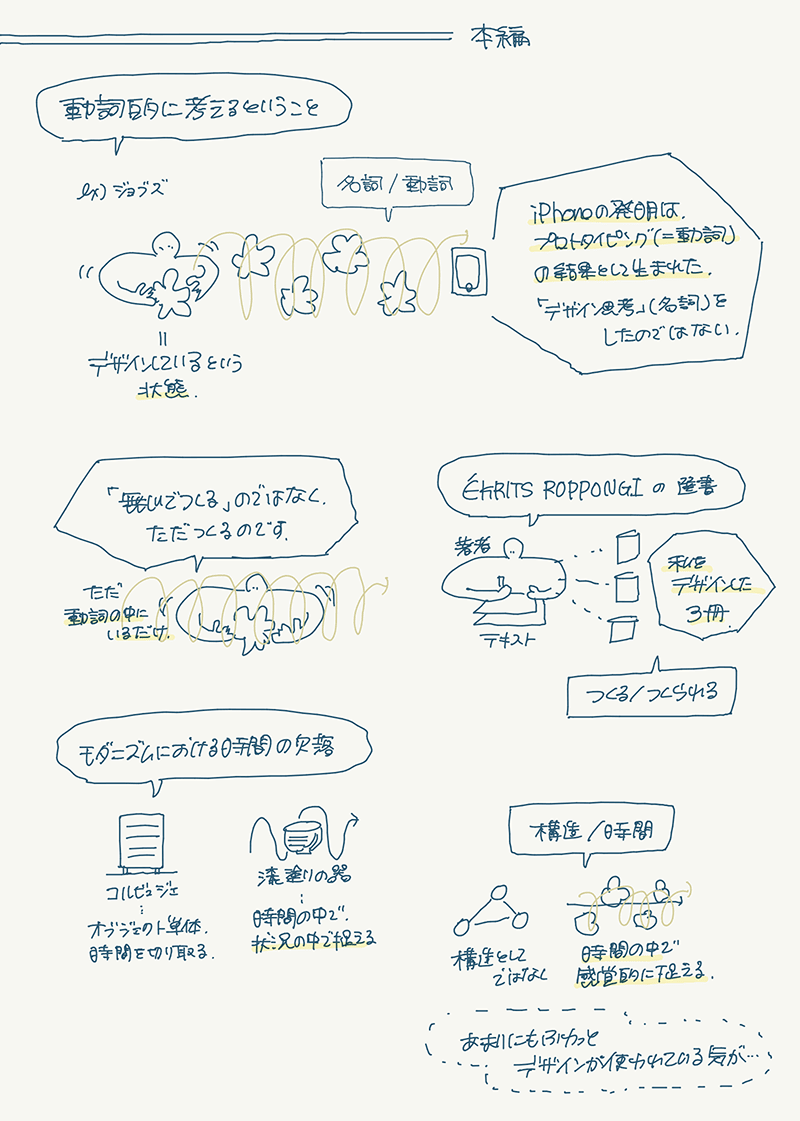 本編
動詞的に考えるということ
ex) ジョブズ
名詞/動詞
iPhoneの発明は、
プロトタイピング(=動詞)
の結果として生まれた。
「デザイン思考」(名詞)を
したのではない。
=
デザインしているという
状態。
「無心でつくる」のではなく、
ただつくるのです。
ただ
動詞の中に
いるだけ。
ÉKRITS ROPPONGI の 選書
著者
テキスト
私を
デザインした
3冊。
つくる/つくられる
モダニズムにおける時間の欠落
コルビュジェ
:
オブジェクト単体。
時間を切り取る。
漆塗りの器
:
時間の中で。
状況の中で捉える
構造/時間
構造として
ではなく
時間の中で
感覚的に捉える。
あまりにもふわっと
デザインが使われている気が…